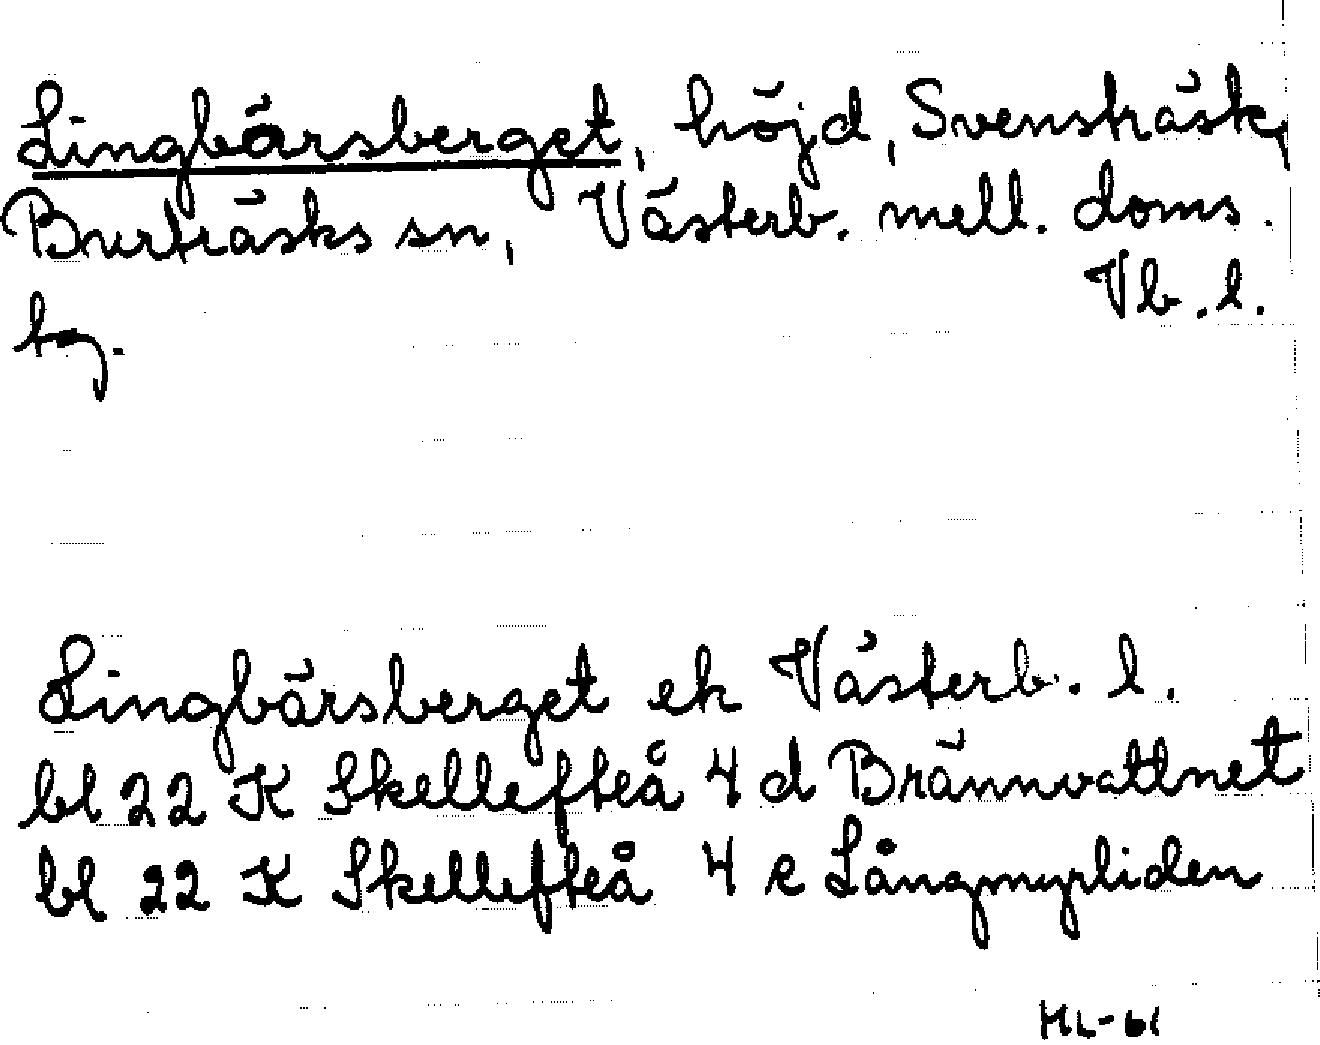 Lingbärsberget, höjd, Svensträsk,
Burträsks sn, Västerb. mell. doms.
Vb. l.
tg.
Lingbärsberget ek Västerb. l.
bl 22 K Skellefteå 4 d Brännvattnet
bl 22 K Skellefteå 4 e Långmyrliden
ML-61